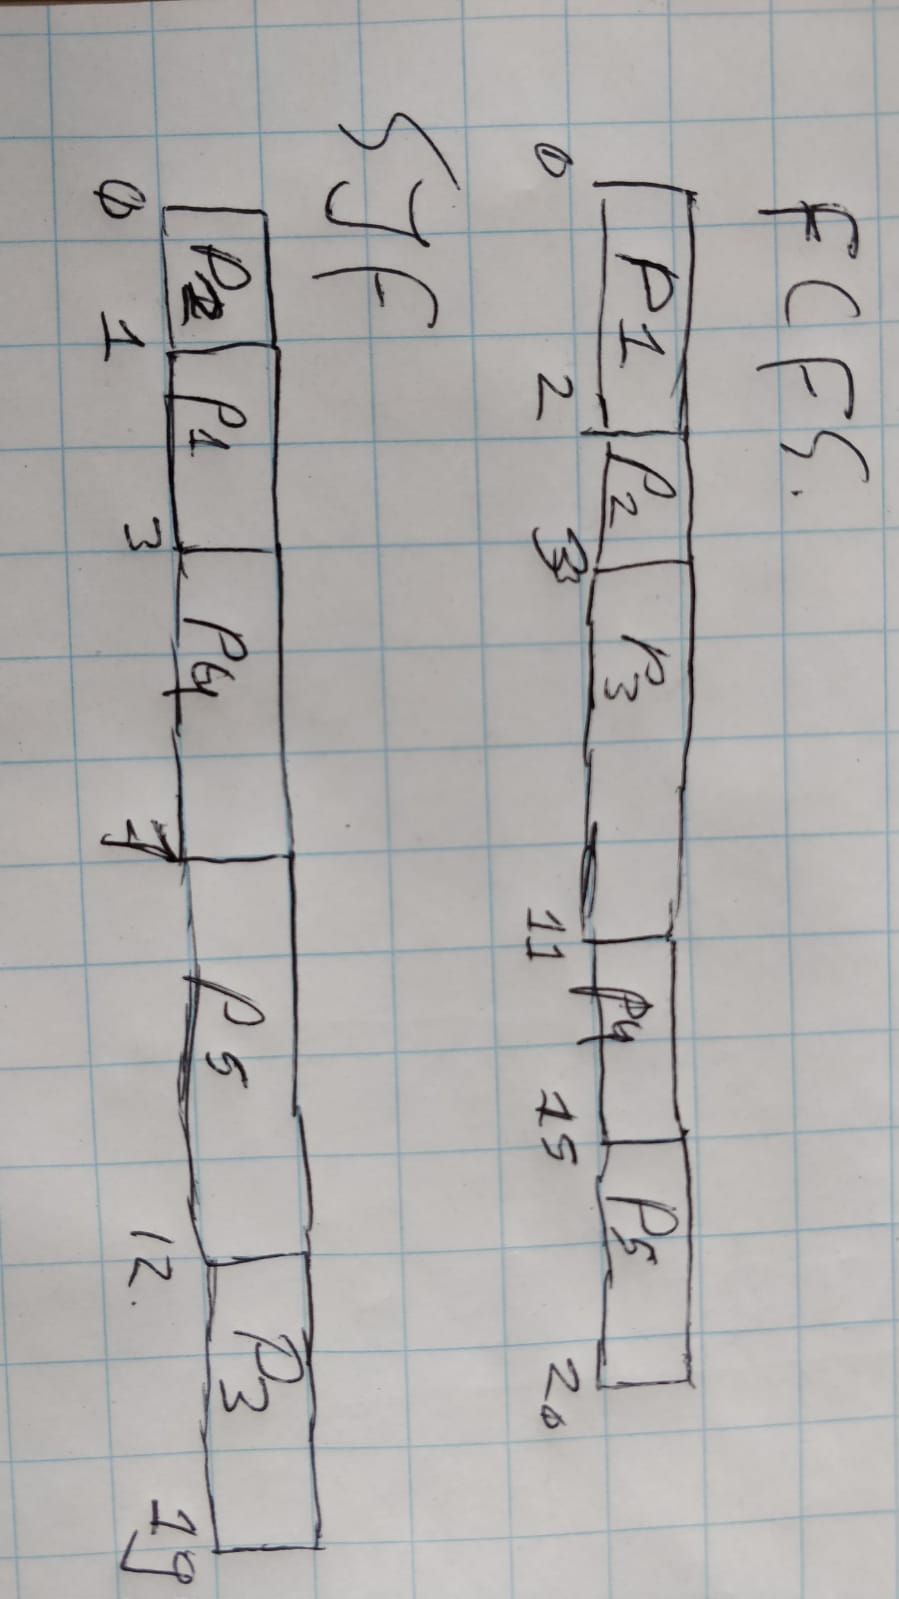 FCFS.
P1 P2 P3 P4 P5
0 2 3 11 15 20
SJF
P2 P1 P4 P5 P3
0 1 3 7 12. 19